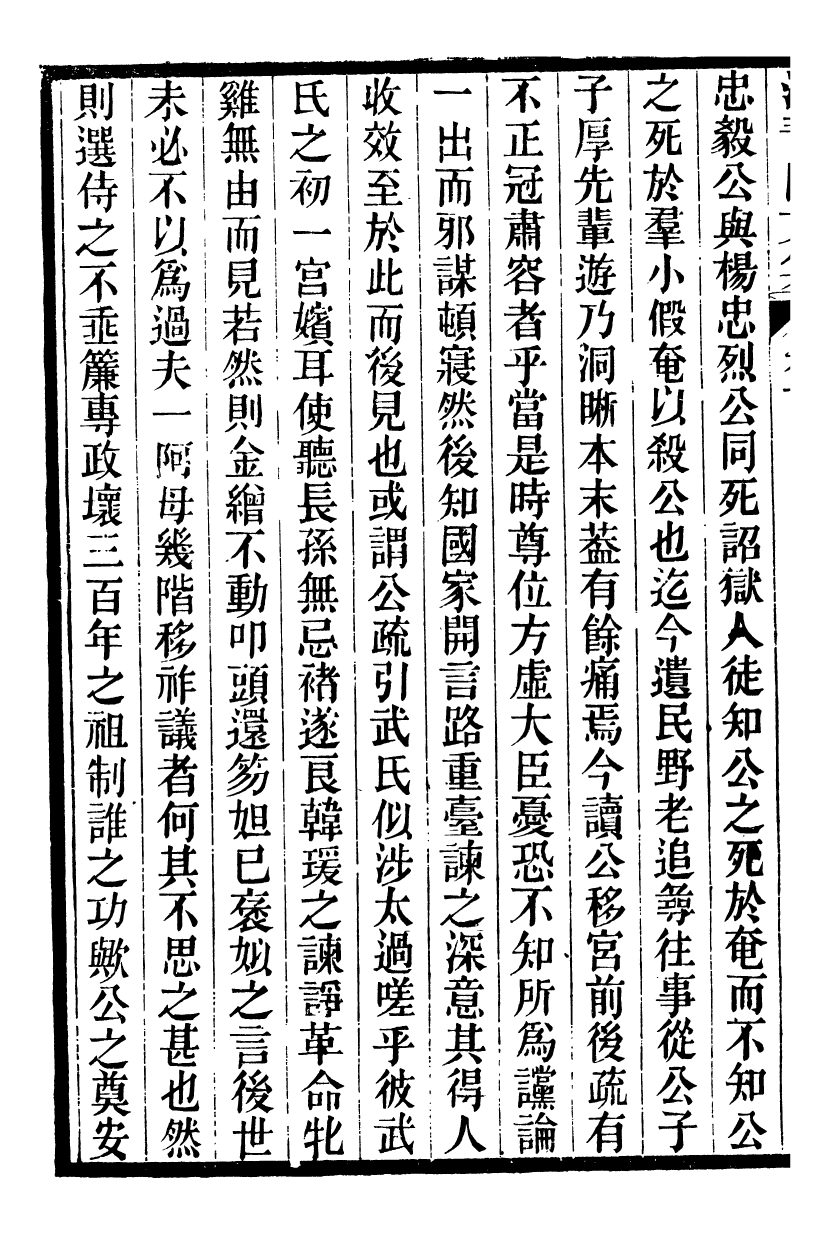 忠毅公與楊忠烈公同死詔獄人徒知公之死於奄而不知公
之死於羣小假奄以殺公也迄今遺民野老追尋往事從公子
子厚先輩遊乃洞晰本末葢有餘痛焉今讀公移宮前後疏有
不正冠肅容者乎當是時尊位方虛大臣憂恐不知所爲讜論
一出而邪謀頓寢然後知國家開言路重臺諫之深意其得人
收效至於此而後見也或謂公疏引武氏似涉太過嗟乎彼武
氏之初一宮嬪耳使聽長孫無忌褚遂良韓瑗之諫諍革命牝
雞無由而見若然則金繒不動叩頭還笏妲已褒姒之言後世
未必不以爲過夫一阿母幾階移祚議者何其不思之甚也然
則選侍之不垂簾專政壞三百年之祖制誰之功歟公之奠安